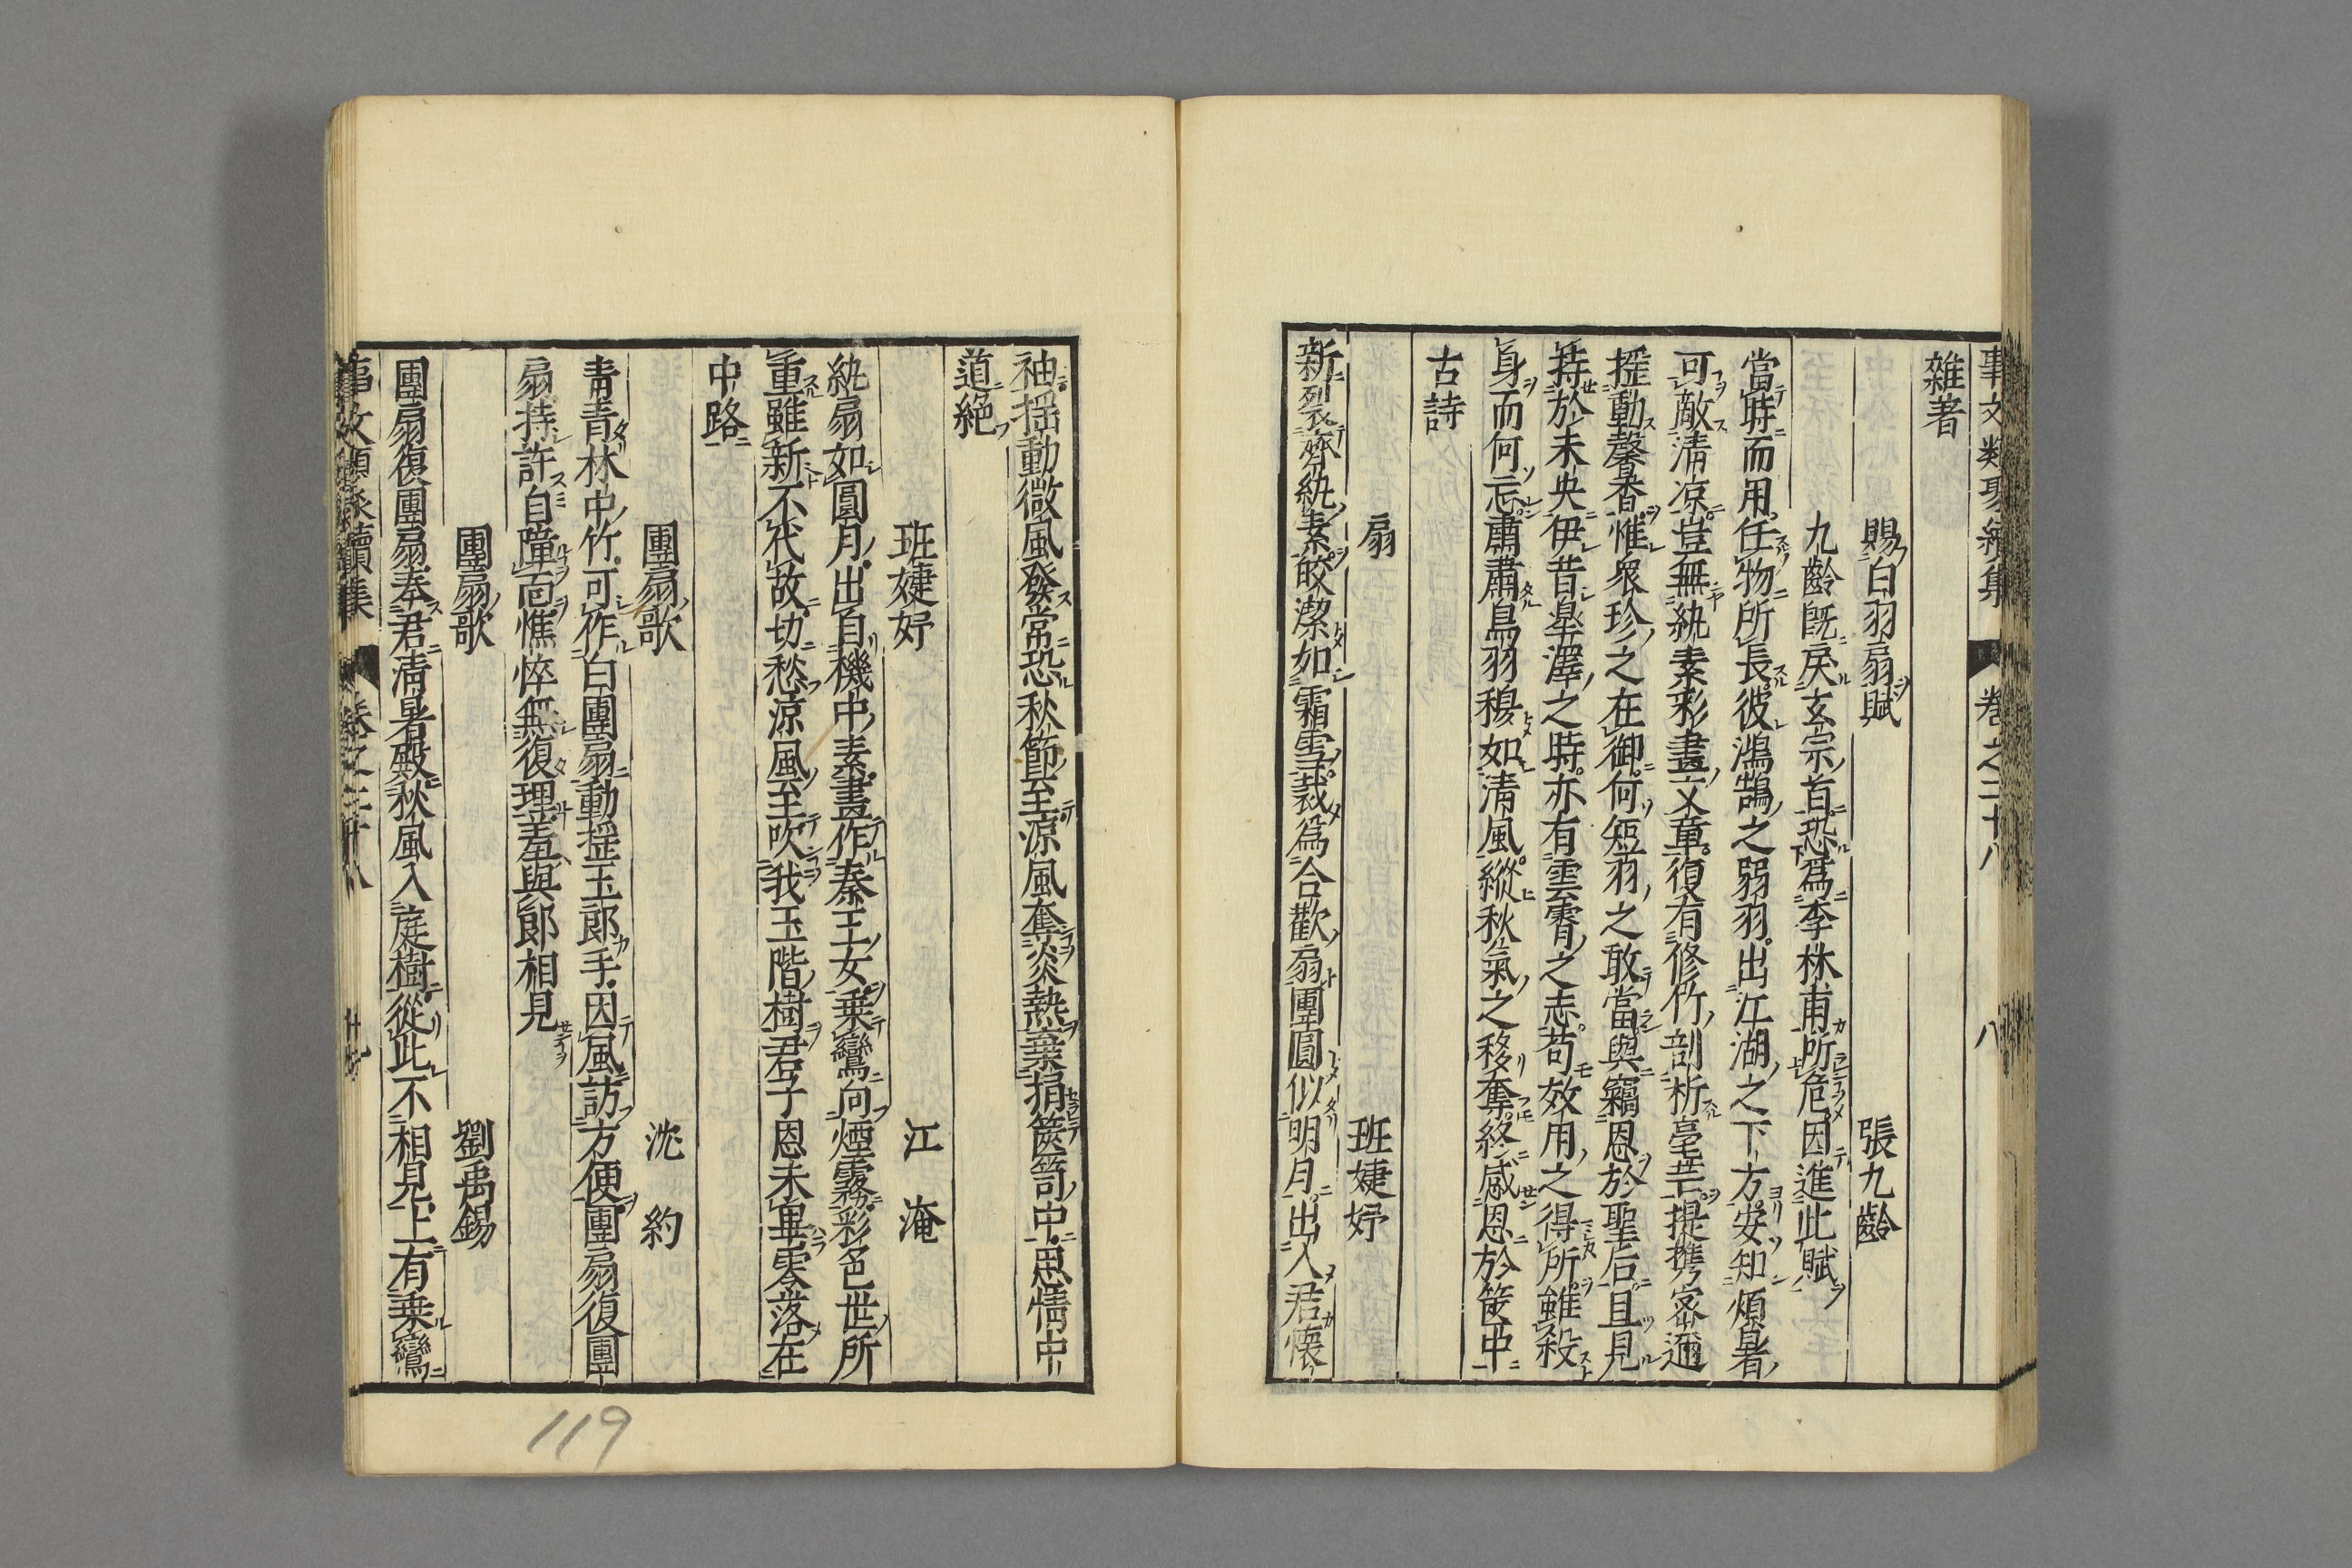 事文類聚續集 卷之二十八 八
雜著
賜白羽扇賦 張九齡
九齡旣戾玄宗首恐爲李林甫所危因進此賦
當時而用任物所長彼鴻鵠之弱羽出江湖之下方安知煩暑
可敵清凉豈無紈素彩畫文章復有修竹剖析毫芒提携密邇
搖動馨香惟衆珍之在御何短羽之敢當與竊恩於聖后且見
持於未央伊昔皐澤之時亦有雲霄之志苟效用之得所雖殺
身而何忘肅肅鳥羽穆如清風縱秋氣之移奪終感恩於篋中
古詩
扇 班婕妤
新裂齊紈素皎潔如霜雪裁爲合歡扇團圓似明月出入君懷
袖揺動微風發常恐秋節至凉風奪炎熱棄捐篋笥中恩情中
道絕
班婕妤 江淹
紈扇如圓月出自機中素畫作秦王女乗鸞向煙霧彩色世所
重雖新不代故切愁凉風至吹我玉階樹君子恩未畢零落在
中路
團扇歌 沈約
青青林中竹可作白團扇動搖玉郎手因風訪方便團扇復團
扇持許自障面憔悴無復理羞與郎相見
團扇歌 劉禹錫
團扇復團扇奉君清暑殿秋風入庭樹從此不相見上有乗鸞